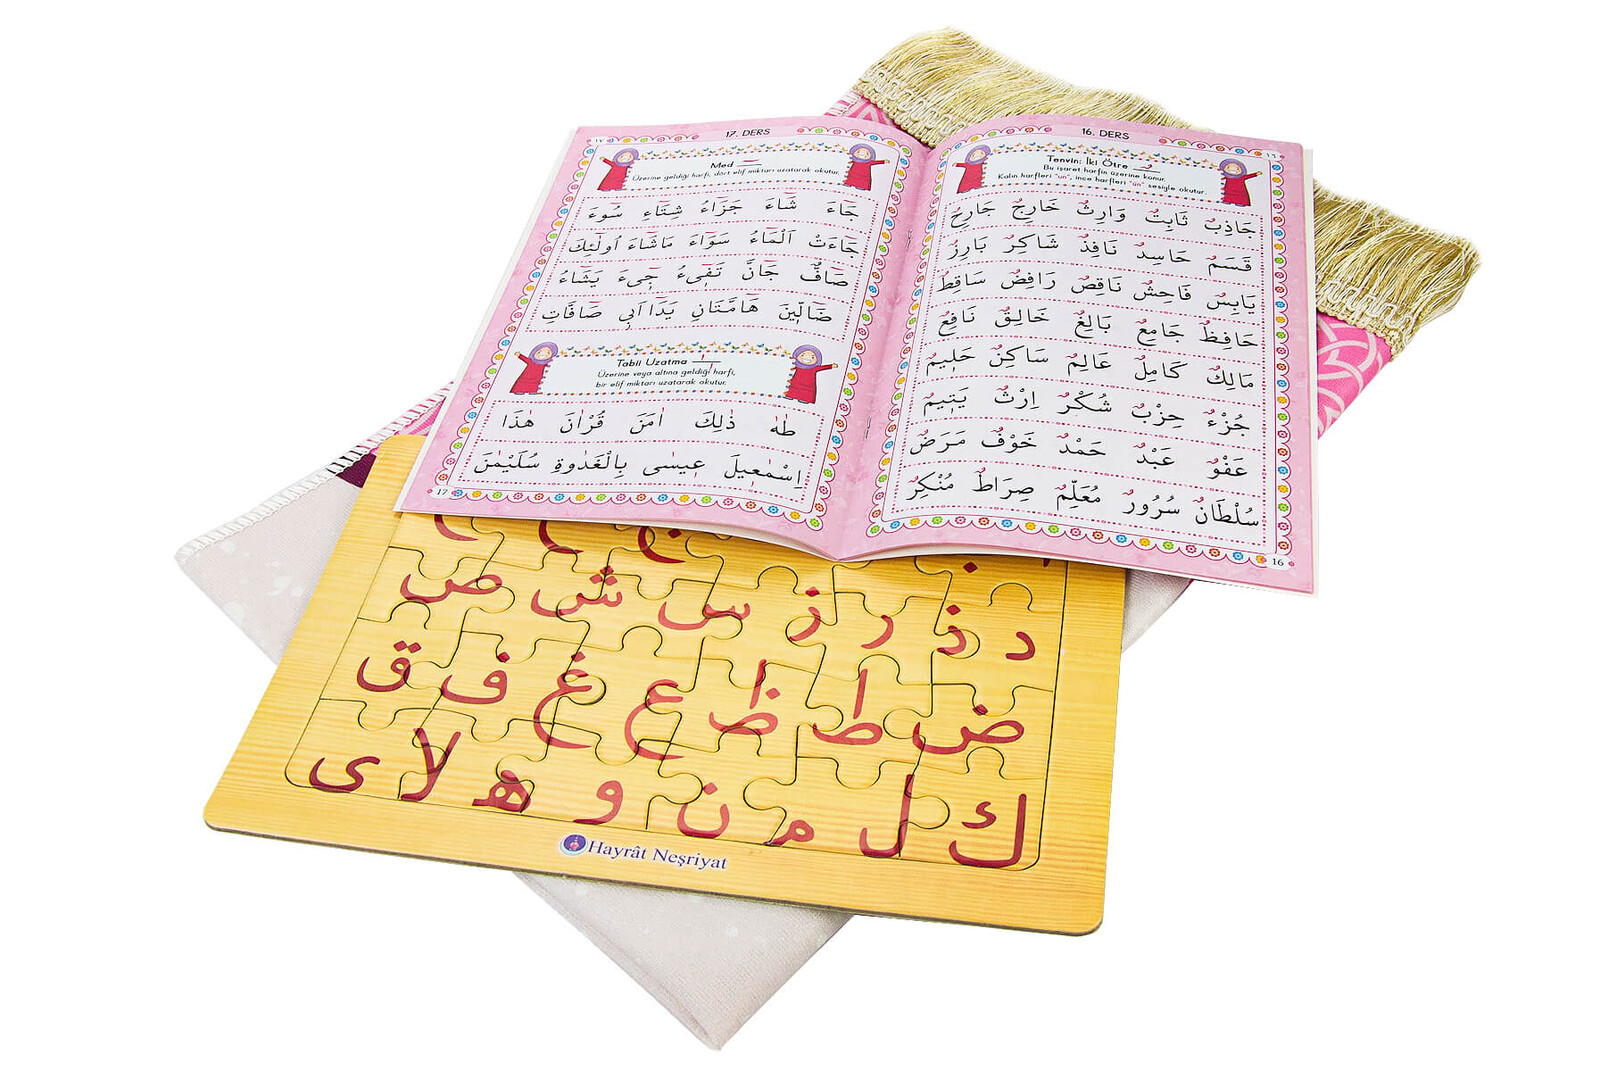 16. DERS
١٦
Tenvin; İki Ötre
Bu işaret harfin üzerine konur.
Kalın harfleri "un", ince harfleri "ün" sesiyle okutur.
جَاذِبٌ ثَابِتٌ وَارِثٌ خَارِجٌ جَارِحٌ
قَسَمٌ حَاسِدٌ نَافِذٌ شَاكِرٌ بَارِزٌ
يَابِسٌ فَاحِشٌ نَاقِصٌ رَافِضٌ سَاقِطٌ
حَافِظٌ جَامِعٌ بَالِغٌ خَالِقٌ نَافِعٌ
مَالِكٌ كَامِلٌ عَالِمٌ سَاكِنٌ حَلِيمٌ
جُزْءٌ حِزْبٌ شُكْرٌ اِرْثٌ يَتِيمٌ
عَفْوٌ عَبْدٌ حَمْدٌ خَوْفٌ مَرَضٌ
سُلْطَانٌ سُرُورٌ مُعَلِّمٌ صِرَاطٌ مُنْكِرٌ
16
17. DERS
١٧
Med
Üzerine geldiği harfi, dört elif miktarı uzatarak okutur.
جَٓاءَ شَٓاءَ جَزَٓاءُ شِتَٓاءِ سُٓوءَ
جَٓاءَتْ اَلْمَٓاءُ سَوَٓاءَ مَاشَٓاءَ اُولٰٓئِكَ
صَٓافٌّ جَٓانَّ تَفِٓيءُ جِٓيءَ يَشَٓاءُ
ضَٓالِّينَ هَٓامَّتَانِ يَدَٓا اَبِي صَٓافَّاتِ
Tabii Uzatma
Üzerine veya altına geldiği harfi,
bir elif miktarı uzatarak okutur.
طٰهٰ ذٰلِكَ اٰمَنَ قُرْاٰنَ هٰذَا
اِسْمٰعِيلَ عِيسٰى بِالْغَدٰوةِ سُلَيْمٰنَ
17
د ذ ر ز س ش ص
ض ط ظ ع غ ف ق
ك ل م ن و ه لا ى
Hayrât Neşriyat